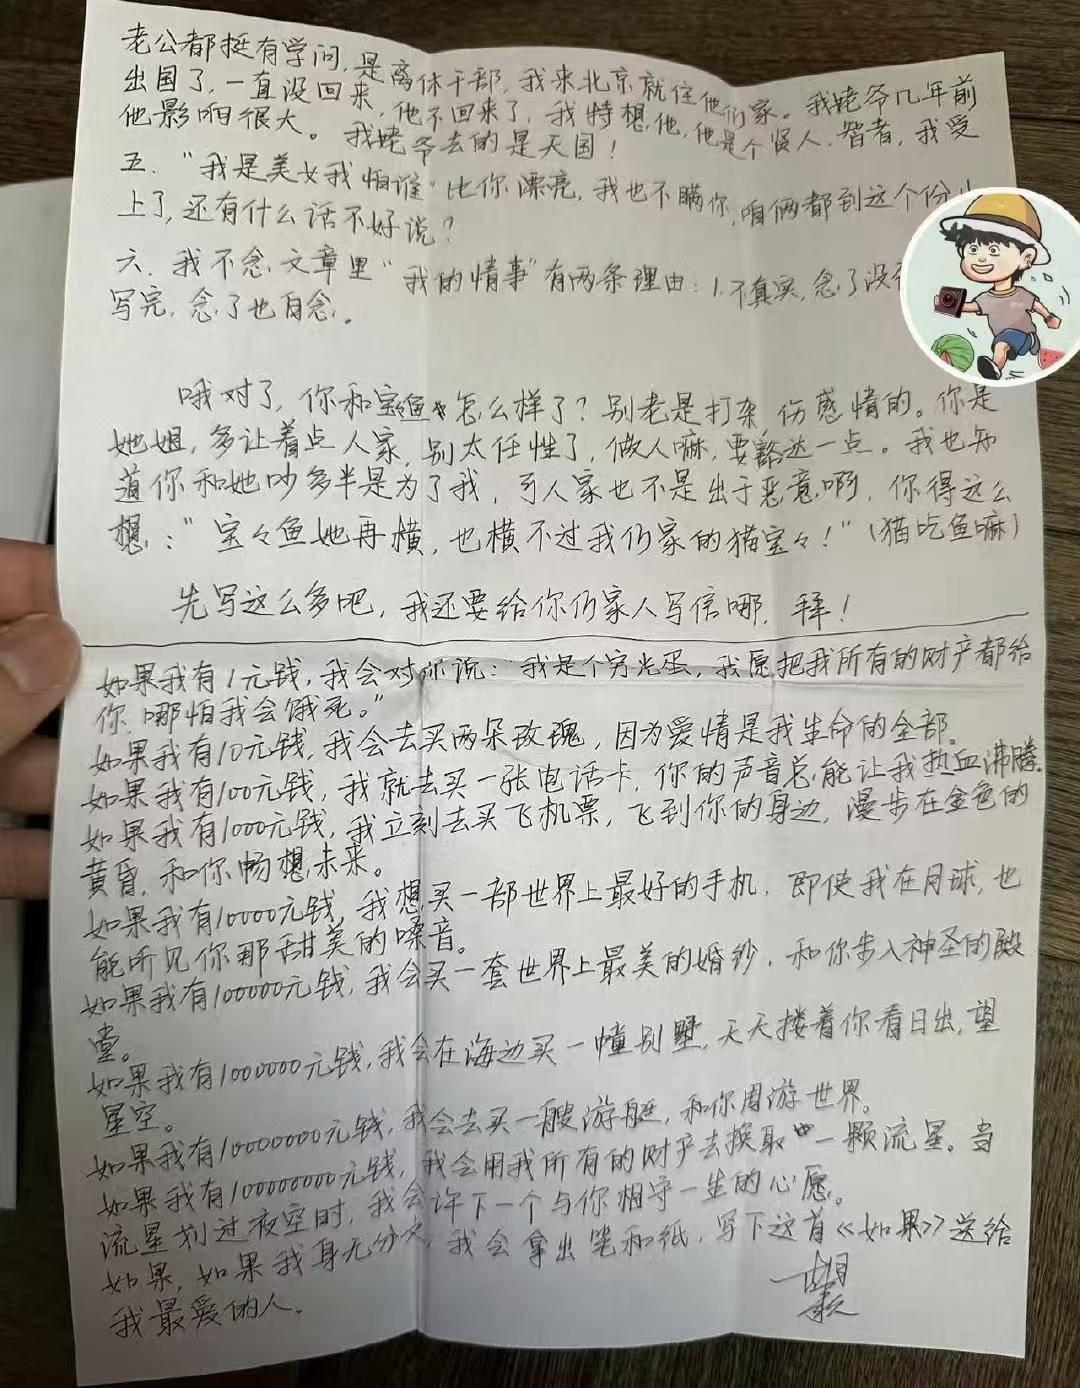 老公都挺有学问,是离休干部,我来北京就住他们家。我姥爷几年前
出国了,一直没回来,他不回来了,我特想他,他是个贤人,智者,我受
他影响很大。我姥爷去的是天国!
五."我是美女我怕谁"比你漂亮,我也不瞒你,咱俩都到这个份
上了,还有什么话不好说?
六.我不念文章里"我的情事"有两条理由:1.不真实,念了没
写完,念了也白念。
哦对了,你和宝鱼怎么样了?别老是打杂,伤感情的。你是
她姐,多让着点人家,别太任性了,做人嘛,要豁达一点。我也知
道你和她吵多半是为了我,可人家也不是出于恶意啊,你得这么
想:"宝々鱼她再横,也横不过我们家的猫宝々!"(猫吃鱼嘛)
先写这么多吧,我还要给你们家人写信哪,拜!
如果我有1元钱,我会对你说:"我是个穷光蛋,我愿把我所有的财产都给
你,哪怕我会饿死。"
如果我有10元钱,我会去买两朵玫瑰,因为爱情是我生命的全部。
如果我有100元钱,我就去买一张电话卡,你的声音总能让我热血沸腾.
如果我有1000元钱,我立刻去买飞机票,飞到你的身边,漫步在金色的
黄昏,和你畅想未来。
如果我有10000元钱,我想买一部世界上最好的手机,即使我在月球,也
能听见你那甜美的嗓音。
如果我有100000元钱,我会买一套世界上最美的婚钞,和你步入神圣的殿
堂。
如果我有1000000元钱,我会在海边买一幢别墅,天天搂着你看日出,望
星空。
如果我有10000000元钱,我会去买一艘游艇,和你周游世界。
如果我有100000000元钱,我会用我所有的财产去换取一颗流星。当
流星划过夜空时,我会许下一个与你相守一生的心愿。
如果,如果我身无分文,我会拿出笔和纸,写下这首《如果》送给
我最爱的人。